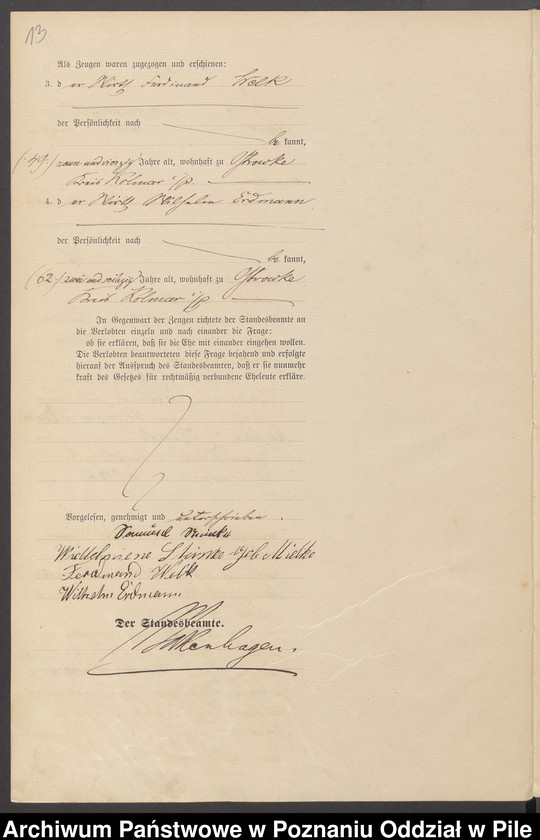 13
Als Zeugen waren zugezogen und erschienen:
3. der Wirth Ferdinand Welk
der Persönlichkeit nach
be kannt,
(49) neun und vierzig Jahre alt, wohnhaft zu Ostrowke
Kreis Kolmar i/p.
4. der Wirth Wilhelm Erdmann
der Persönlichkeit nach
be kannt,
(62) zwei und sechzig Jahre alt, wohnhaft zu Ostrowke
Kreis Kolmar i/p
In Gegenwart der Zeugen richtete der Standesbeamte an
die Verlobten einzeln und nach einander die Frage:
ob sie erklären, daß sie die Ehe mit einander eingehen wollen.
Die Verlobten beantworteten diese Frage bejahend und erfolgte
hierauf der Ausspruch des Standesbeamten, daß er sie nunmehr
kraft des Gesetzes für rechtmäßig verbundene Eheleute erkläre.
Vorgelesen, genehmigt und unterschrieben.
Samuel
geb Mielke
Ferdinand Welk
Wilhelm Erdmann
Der Standesbeamte.
Archiwum Państwowe w Poznaniu Oddział w Pile